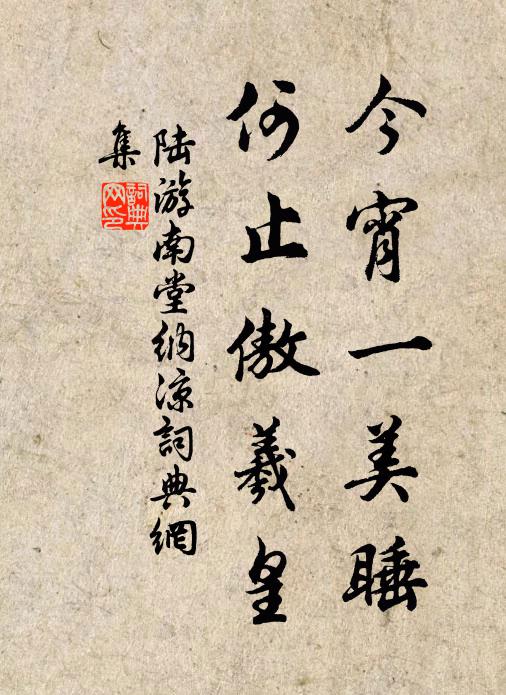 今宵一美睡
何止傲羲皇
陆游南堂納凉詞典網
集
詞典
网印